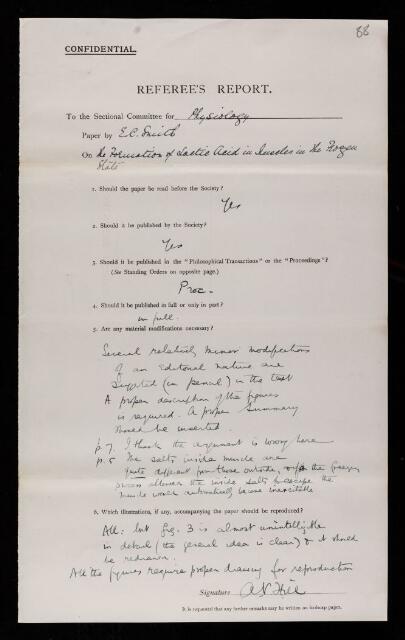 88
CONFIDENTIAL.
REFEREE'S REPORT.
To the Sectional Committee for Physiology
Paper by E.C. Smith
On The Formation of Lactic Acid in Muscles in the Frozen
State
1. Should the paper be read before the Society?
Yes
2. Should it be published by the Society?
Yes
3. Should it be published in the "Philosophical Transactions" or the "Proceedings"?
(See Standing Orders on opposite page.)
Proc.
4. Should it be published in full or only in part?
in full.
5. Are any material modifications necessary?
Several relatively minor modifications
of an editorial nature are
suggested (in pencil) in the text
A proper description of the figures
is required. A proper Summary
should be inserted.
p. 7. I think the argument is wrong here
p. 8 The salts inside muscle are
quite different from those outside, & if the freezing
process allowed the inside salts to escape the
muscle would automatically become inexcitable
6. Which illustrations, if any, accompanying the paper should be reproduced?
All: but fig. 3 is almost unintelligible
in detail (the general idea is clear) & it should
be redrawn.
All the figures require proper drawing for reproduction
Signature A V Hill
It is requested that any further remarks may be written on foolscap paper.